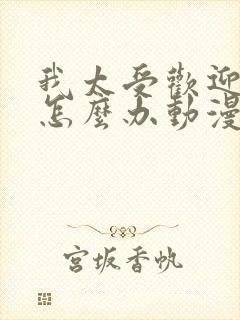 我太受歡迎
怎麼办動漫
宮坂香帆